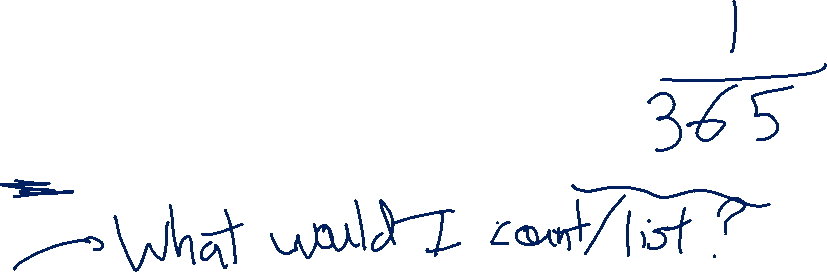 1
365
What would I count/list?